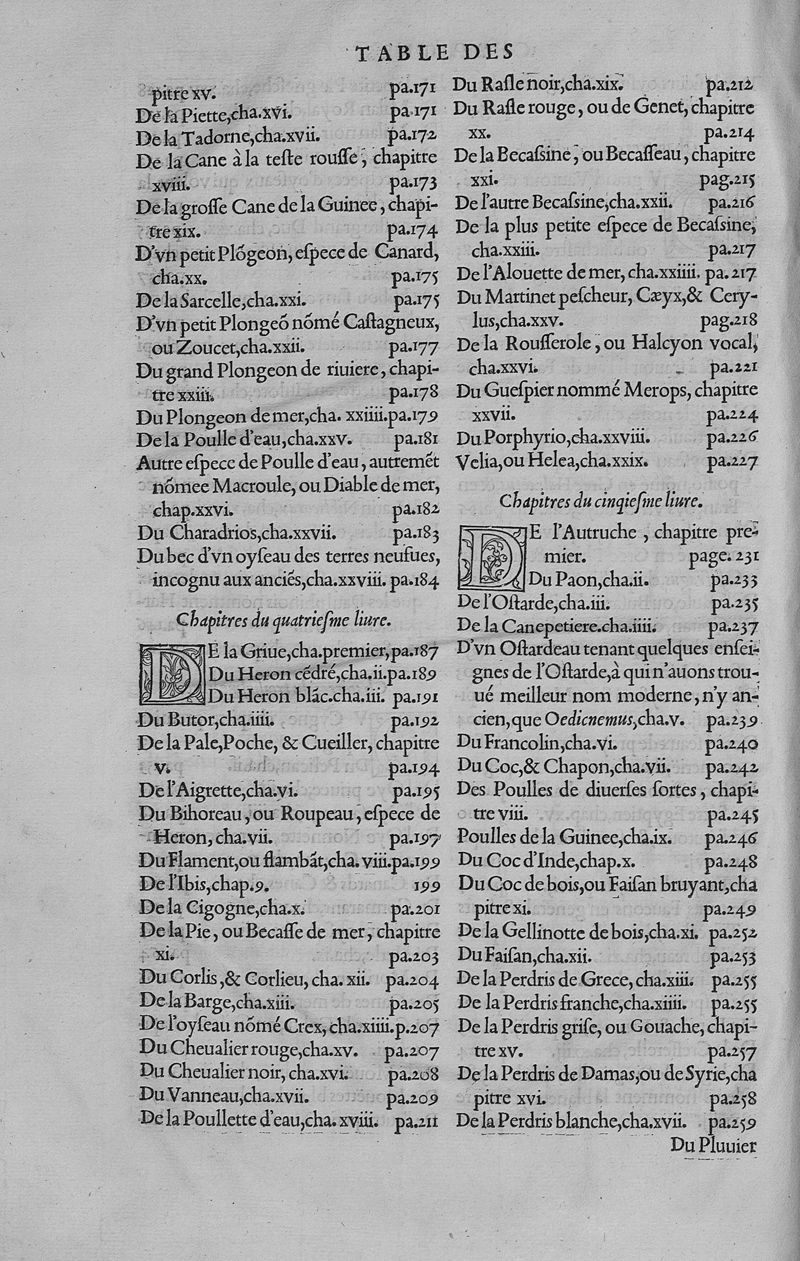 TABLE DES
pitre xv. pa.171
De la Piette,cha.xvi. pa 171
De la Tadorne,cha.xvii. pa.172
De la Cane à la teſte rouſſe, chapitre
xviii. pa.173
De la groſſe Cane de la Guinee, chapi-
tre xix. pa.174
D'vn petit Plógeon, eſpece de Canard,
cha.xx. pa.175
De la Sarcelle,cha.xxi. pa.175
D'vn petit Plongeó nómé Caſtagneux,
ou Zoucet,cha.xxii. pa.177
Du grand Plongeon de riuiere, chapi-
tre xxiii. pa.178
Du Plongeon de mer,cha. xxiiii.pa.179
De la Poulle d'eau,cha.xxv. pa.181
Autre eſpece de Poulle d'eau, autremét
nómee Macroule, ou Diable de mer,
chap.xxvi. pa.182
Du Charadrios,cha.xxvii. pa.183
Du bec d'vn oyſeau des terres neufues,
incognu aux anciés,cha.xxviii. pa.184
Chapitres du quatrieſme liure.
DE la Griue,cha.premier,pa.187
Du Heron cédré,cha.ii.pa.189
Du Heron blác.cha.iii. pa.191
Du Butor,cha.iiii. pa.192
De la Pale,Poche, & Cueiller, chapitre
v. pa.194
De l'Aigrette,cha.vi. pa.195
Du Bihoreau, ou Roupeau, eſpece de
Heron, cha.vii. pa.197
Du Flament,ou flambát,cha. viii.pa.199
De l'Ibis,chap.9. 199
De la Cigogne,cha.x. pa.201
De la Pie, ou Becaſſe de mer, chapitre
xi. pa.203
Du Corlis, & Corlieu, cha. xii. pa.204
De la Barge,cha.xiii. pa.205
De l'oyſeau nómé Crex, cha.xiiii.p.207
Du Cheualier rouge,cha.xv. pa.207
Du Cheualier noir, cha.xvi. pa.208
Du Vanneau,cha.xvii. pa.209
De la Poullette d'eau,cha. xviii. pa.211
Du Raſle noir,cha.xix. pa.212
Du Raſle rouge, ou de Genet, chapitre
xx. pa.214
De la Becaſsine, ou Becaſſeau, chapitre
xxi. pag.215
De l'autre Becaſsine,cha.xxii. pa.216
De la plus petite eſpece de Becaſsine,
cha.xxiii. pa.217
De l'Alouette de mer, cha.xxiiii. pa.217
Du Martinet peſcheur, Cæyx,& Cery-
lus,cha.xxv. pag.218
De la Rouſſerole, ou Halcyon vocal,
cha.xxvi. pa.221
Du Gueſpier nommé Merops, chapitre
xxvii. pa.224
Du Porphyrio,cha.xxviii. pa.226
Velia,ou Helea,cha.xxix. pa.227
Chapitres du cinqieſme liure.
DE l'Autruche, chapitre pre-
mier. page.231
Du Paon,cha.ii. pa.233
De l'Oſtarde,cha.iii. pa.235
De la Canepetiere.cha.iiii. pa.237
D'vn Oſtardeau tenant quelques enſei-
gnes de l'Oſtarde,à qui n'auons trou-
ué meilleur nom moderne, n'y an-
cien,que Oedicnemus,cha.v. pa.239
Du Francolin,cha.vi. pa.240
Du Coc,& Chapon,cha.vii. pa.242
Des Poulles de diuerſes ſortes, chapi-
tre viii. pa.245
Poulles de la Guinee,cha.ix. pa.246
Du Coc d'Inde,chap.x. pa.248
Du Coc de bois,ou Faiſan bruyant,cha
pitre xi. pa.249
De la Gellinotte de bois,cha.xi. pa.252
Du Faiſan,cha.xii. pa.253
De la Perdris de Grece, cha.xiii. pa.255
De la Perdris franche,cha.xiiii. pa.255
De la Perdris griſe, ou Gouache, chapi-
tre xv. pa.257
De la Perdris de Damas,ou de Syrie,cha
pitre xvi. pa.258
De la Perdris blanche,cha.xvii. pa.259
Du Pluuier